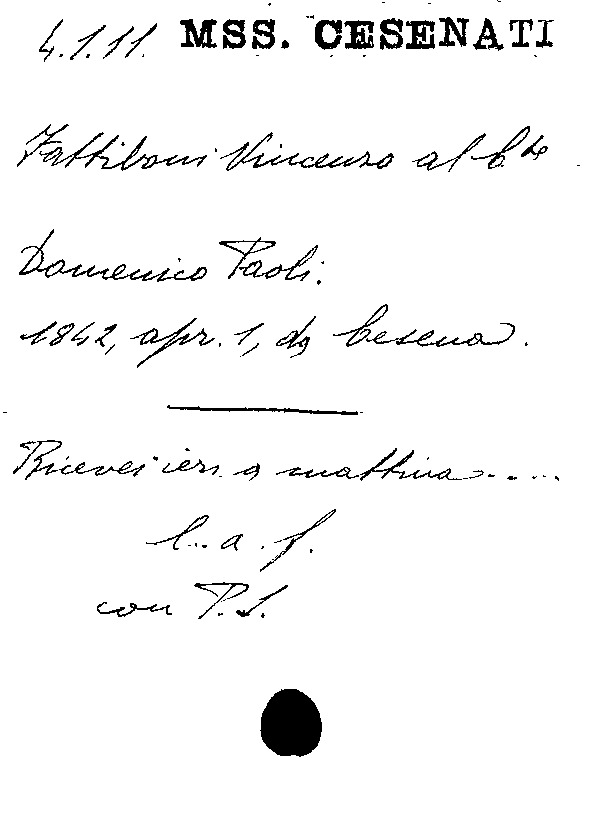 4.1.11. MSS. CESENATI
Fattiboni Vincenzo al C.te
Domenico Paoli.
1842, apr. 1, da Cesena.
Ricevei ieri a mattina.....
l. a. f.
con P.S.